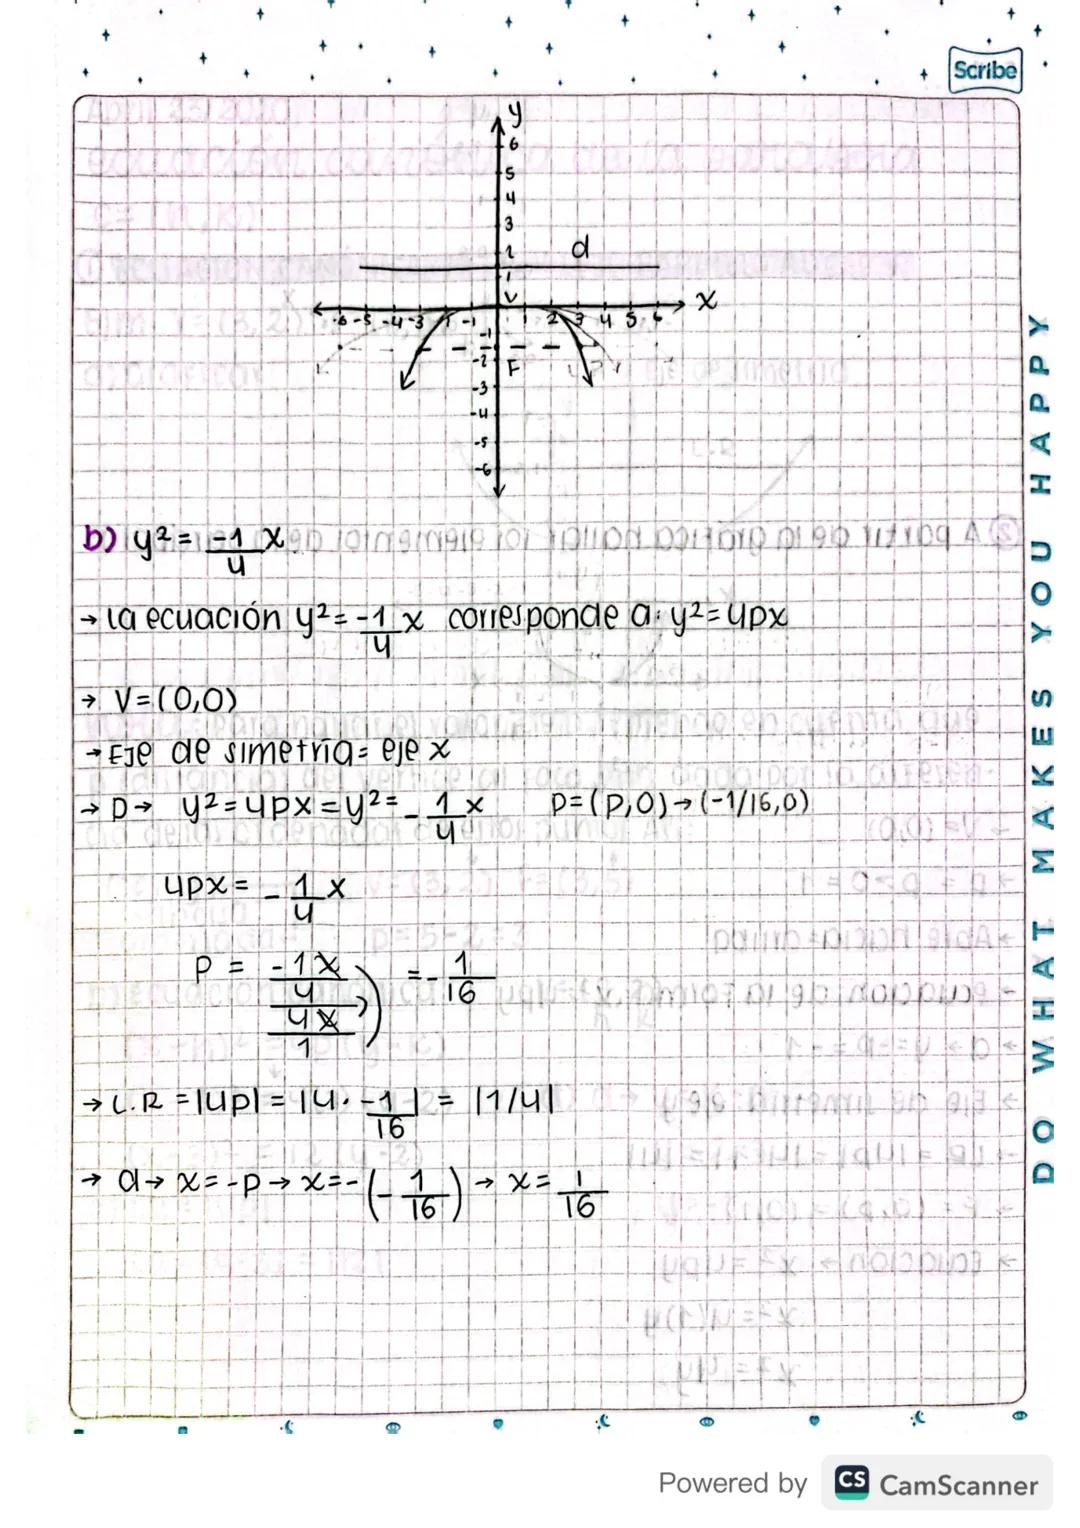 Scribe
y
6
5
4
3
2
1
d
V
x
-6 -5 -4 -3 -1 1 2 3 4 5 6
-1
-2
F
-3
-4
-5
-6
b) y² = -1/4 x
→ La ecuación y² = -1/4 x corresponde a: y² = 4px
→ V = (0,0)
→ Eje de simetría = eje x
→ p → y² = 4px = y² = -1/4 x p = (P,0) → (-1/16,0)
4px = -1/4 x
P = -1x/4 / 4x/1 = -1/16
→ L.R = |4p| = |4 · -1/16| = |1/4|
→ d → x = -p → x = -(-1/16) → x = 1/16
DO WHAT MAKES YOU HAPPY
Powered by CS CamScanner